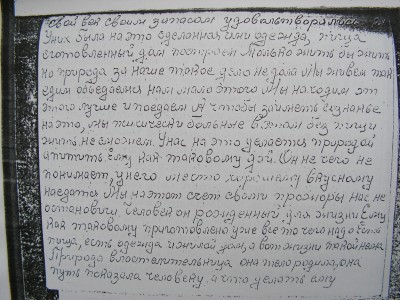 свой бок своим запасом удовольтворялись
У них была на это сделанная ими одежда, пища
сготовленный дом построен Только жить бы жить
но природа за наше такое дело не дала Мы живем там
едим объедаемся нам мало этого Мы находим эт
этого лучше и поедаем А чтобы заиметь сознанье
на это, мы технически больные в этом без пищи
жить не сможем. У нас на это уделяется природой
апитить ему как таковому дай. Он не чего не
понимает, у него место хорошему вкусному
наедаться Мы на этот счет свами прожоры нас не
остановишь. Человек он рожденный для жизни Ему
как таковому приготовлено уже все то чего надо есть
пища, есть одежда и жилой дом, а вот жизни такой нема
Природа властелительница она тело родила, она
путь показала человеку, а что делать ему